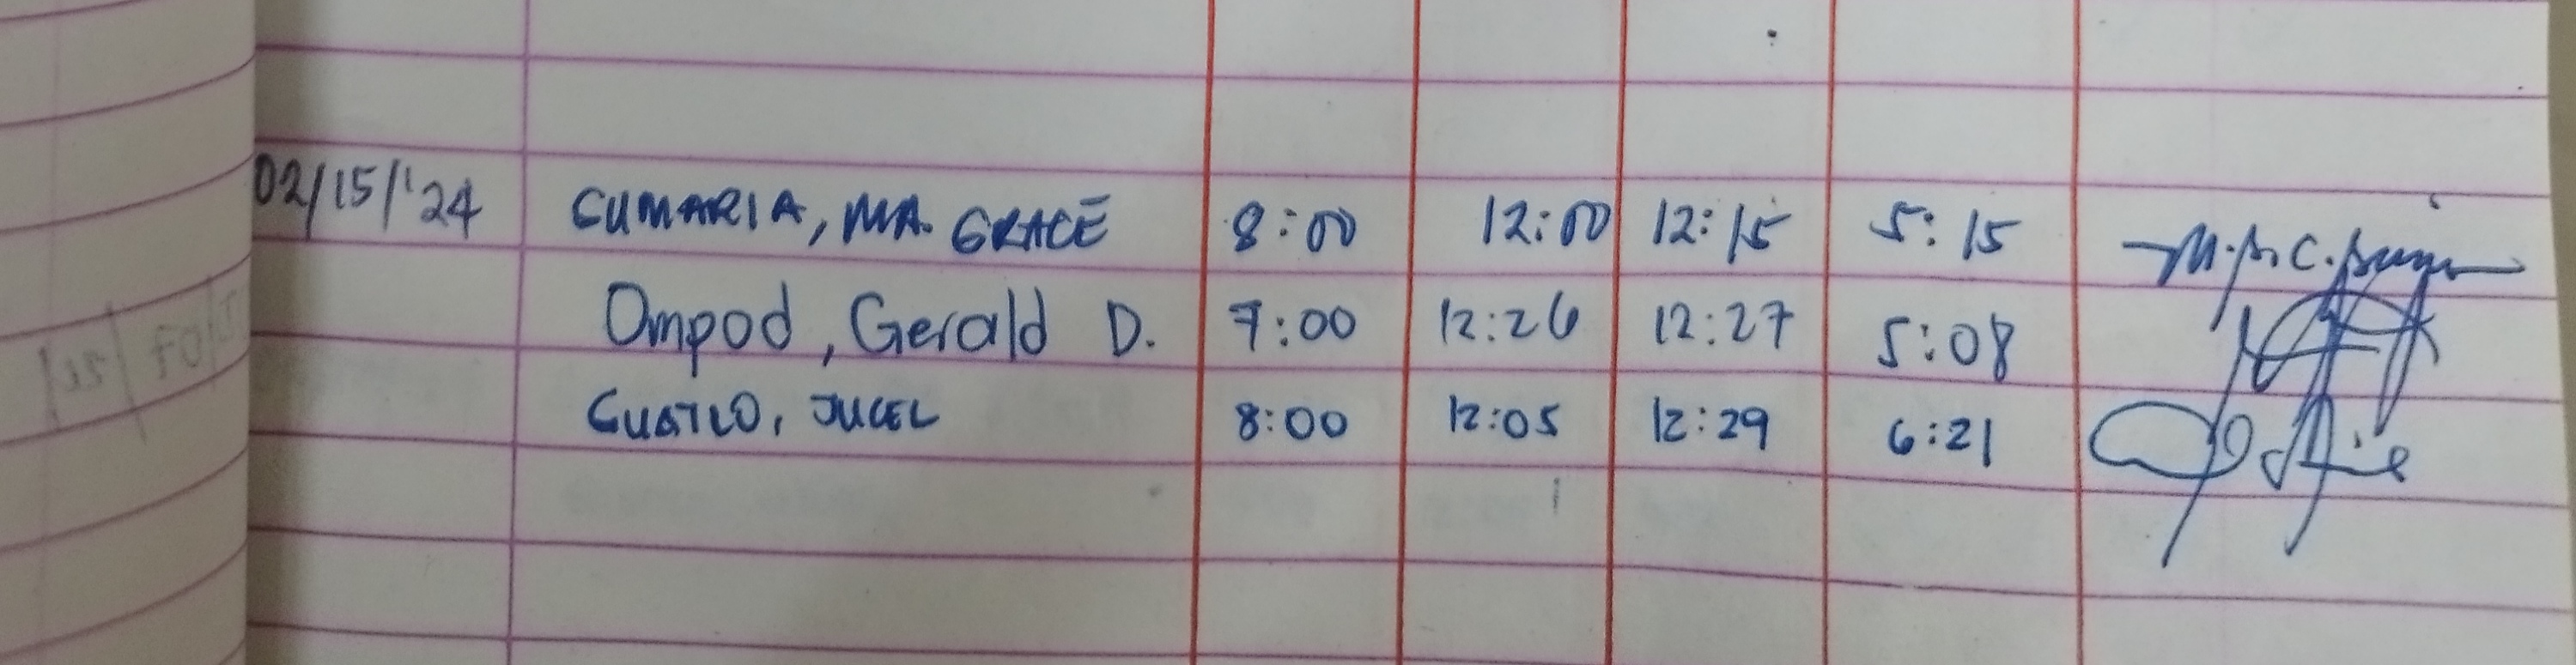 02/15/'24 CUMARIA, MA. GRACE 8:00 12:00 12:15 5:15
Ompod, Gerald D. 7:00 12:26 12:27 5:08
CUATLO, JUCEL 8:00 12:05 12:29 6:21